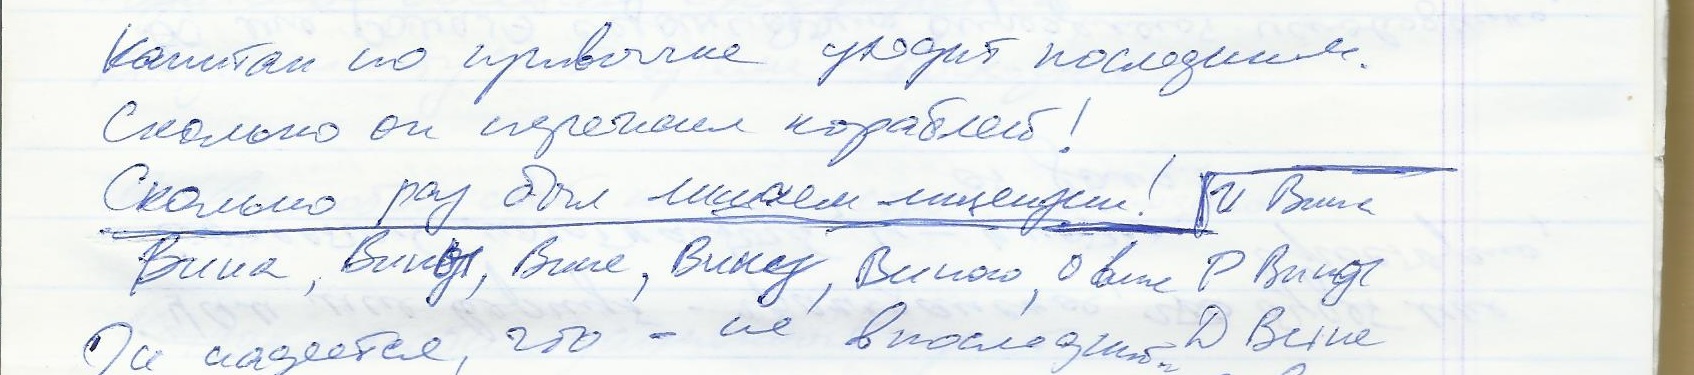 Капитан по привычке уходит последним.
Сколько он перечаем кораблей!
Сколько раз был лишаем лицензии! И Вина
Вина, Вины, Вине, Вину, Виною, О вине Р Вины
Он надеется, что - не впоследний. Д Вине